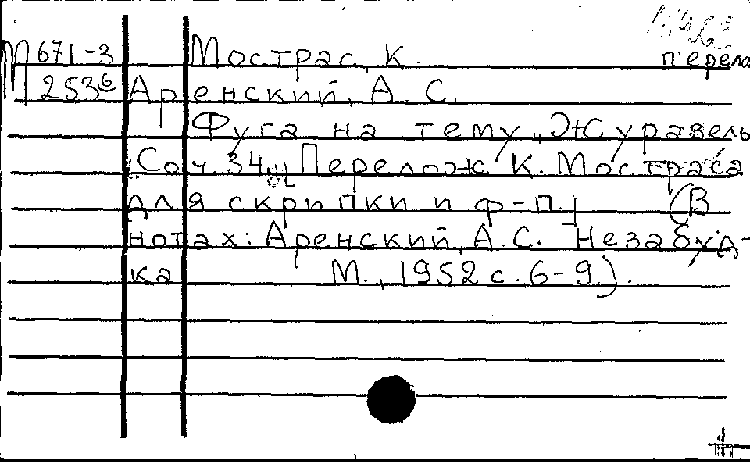 М 671-3 Мострас, К. перело
М 253 6 Аренский, А. С.
Фуга на тему "Журавель
Соч. 34 III Перелож. К. Мостраса
для скрипки и ф-п. (В
нотах: Аренский, А. С. Незабуд-
ка М., 1952 с. 6-9).